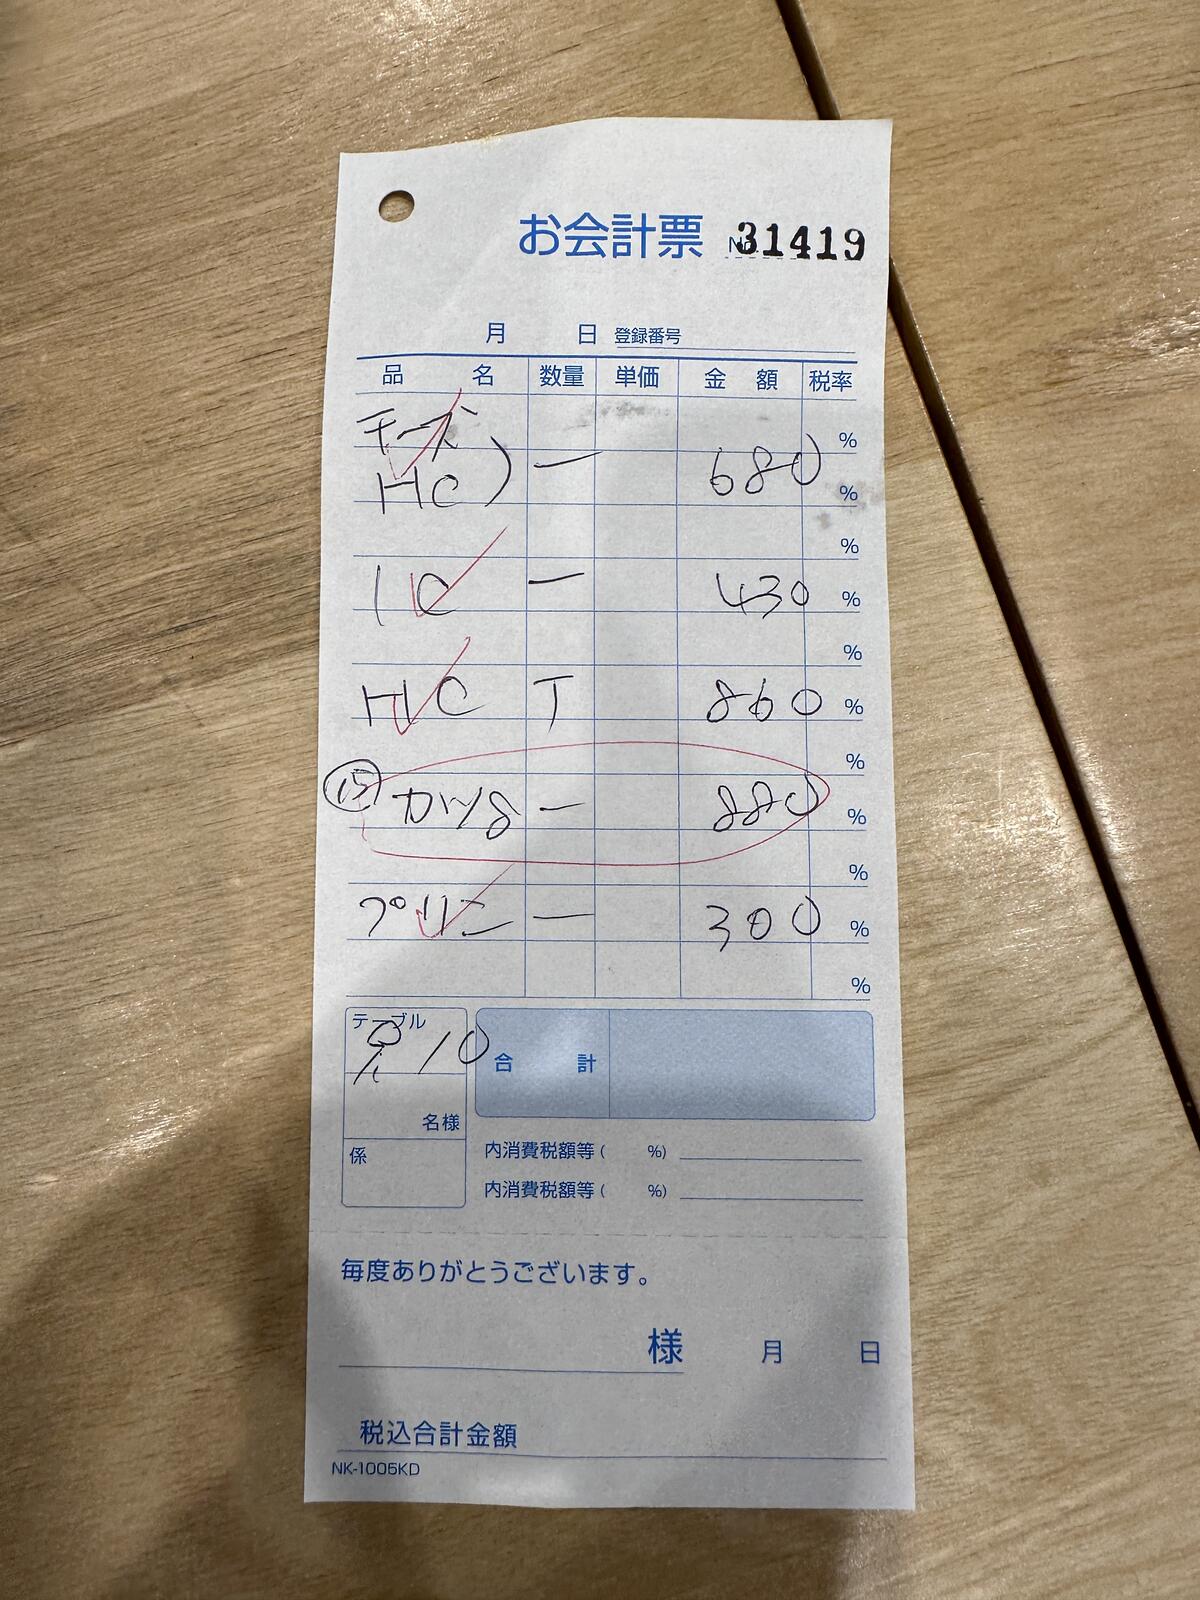 お会計票 № 31419
月 日 登録番号
品名 数量 単価 金額 税率
チーズ %
HC) 一 680 %
%
IC 一 430 %
%
HC T 860 %
%
⑮ 一 880 %
%
プリン 一 300 %
%
テーブル
10
合計
名様
係
内消費税額等( %)
内消費税額等( %)
毎度ありがとうございます。
様 月 日
税込合計金額
NK-1005KD